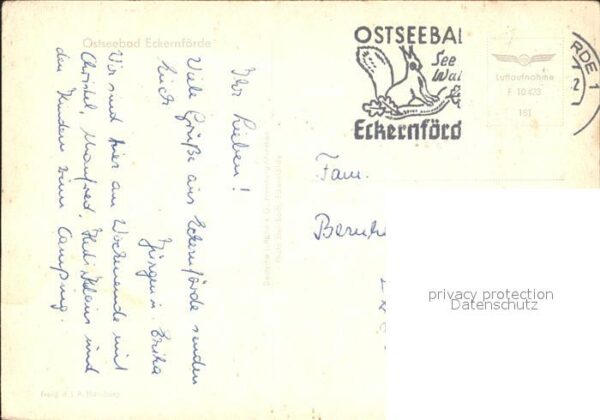 Ostseebad Eckernförde
Ihr Lieben!
Viele Grüße aus Eckernförde senden
Euch
Jürgen u. Erika
Wir sind hier am Wochenende mit
Christel, Manfred, und
den Kindern zum Camping.
OSTSEEBA
See
Wal
Eckernförd
RDE 1
2
Luftaufnahme
F 10 423
161
Fam.
privacy protection
Datenschutz